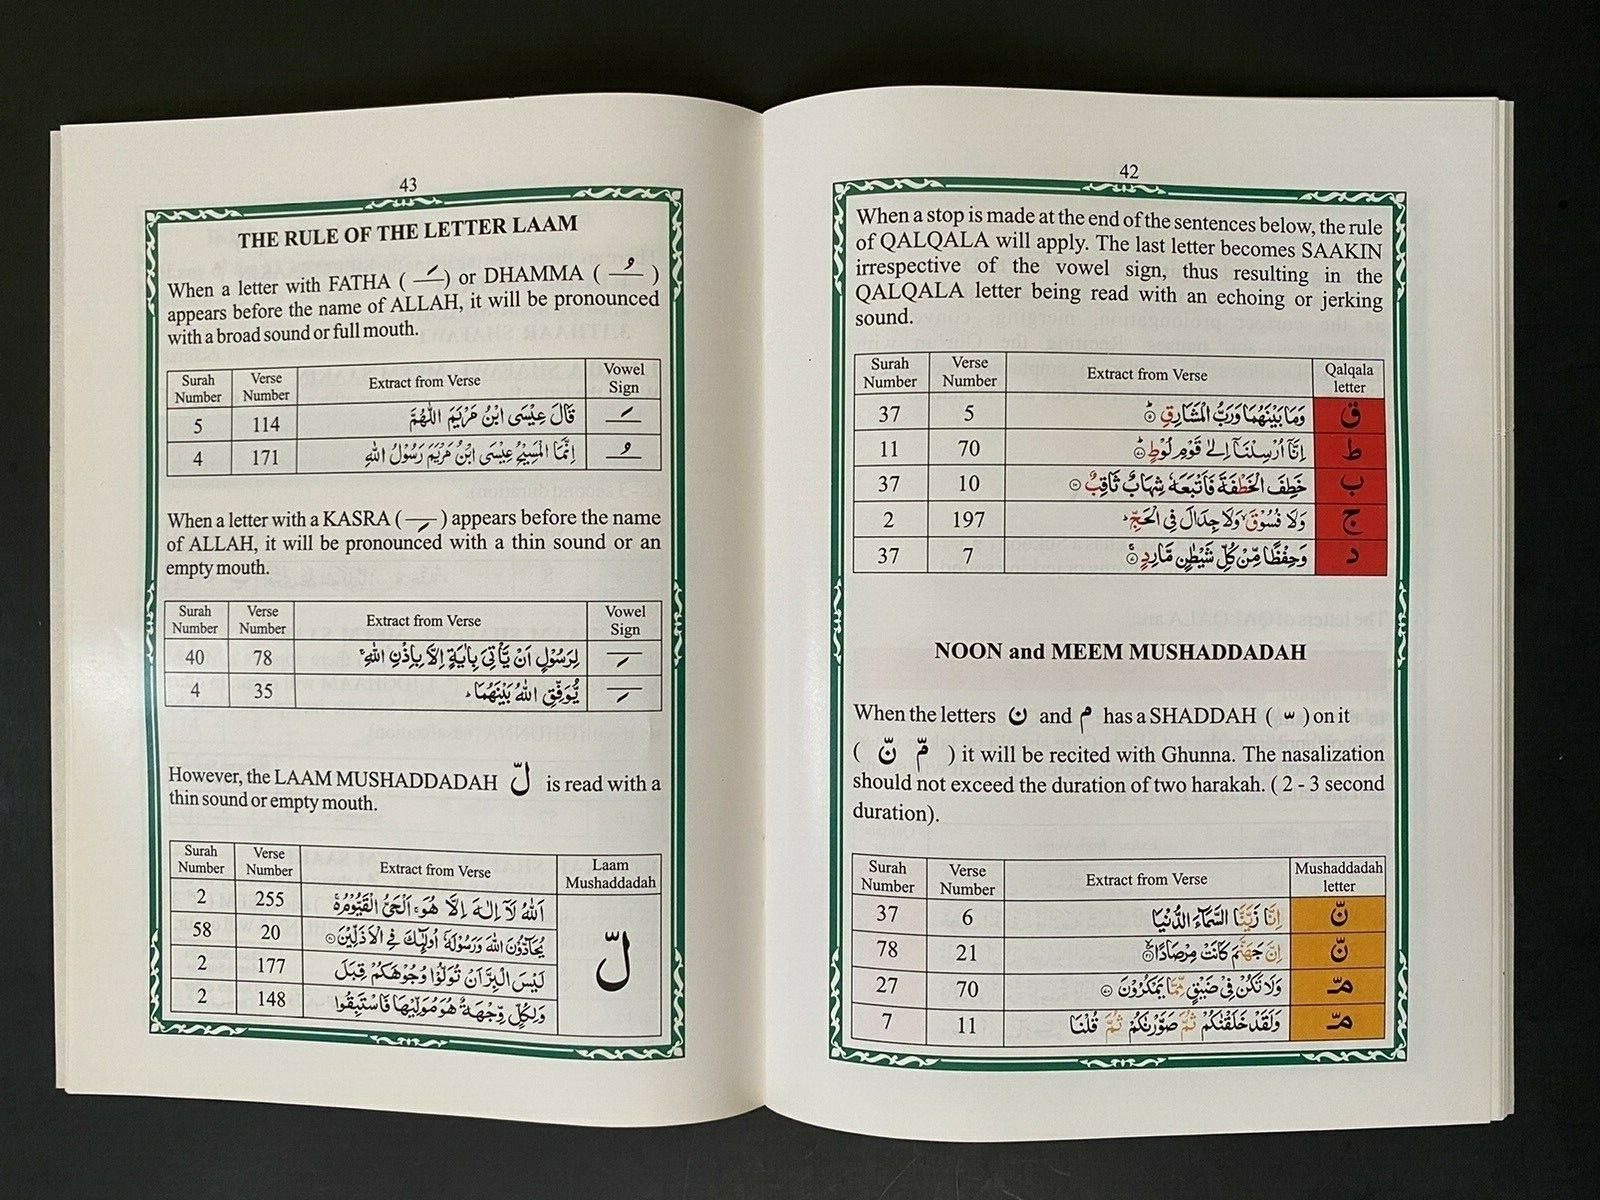 42
When a stop is made at the end of the sentences below, the rule
of QALQALA will apply. The last letter becomes SAAKIN
irrespective of the vowel sign, thus resulting in the
QALQALA letter being read with an echoing or jerking
sound.
Surah Number Verse Number Extract from Verse Qalqala letter
37 5 وَمَا بَيْنَهُمَا وَرَبُّ الْمَشَارِقِ ۵ ق
11 70 اِنَّآ اُرْسِلْنَآ اِلٰى قَوْمِ لُوْطٍ ۷۰ ط
37 10 خَطِفَ الْخَطْفَةَ فَاَتْبَعَهٗ شِهَابٌ ثَاقِبٌ ۱۰ ب
2 197 وَلَا فُسُوْقَ وَلَا جِدَالَ فِى الْحَجِّ ج
37 7 وَحِفْظًا مِّنْ كُلِّ شَيْطٰنٍ مَّارِدٍ ۷ د
NOON and MEEM MUSHADDADAH
When the letters ن and م has a SHADDAH ( ّ ) on it
( نّ مّ ) it will be recited with Ghunna. The nasalization
should not exceed the duration of two harakah. ( 2 - 3 second
duration).
Surah Number Verse Number Extract from Verse Mushaddadah letter
37 6 اِنَّا زَيَّنَّا السَّمَآءَ الدُّنْيَا نّ
78 21 اِنَّ جَهَنَّمَ كَانَتْ مِرْصَادًا ۲۱ نّ
27 70 وَلَا تَكُنْ فِىْ ضَيْقٍ مِّمَّا يَمْكُرُوْنَ ۷۰ مّـ
7 11 وَلَقَدْ خَلَقْنٰكُمْ ثُمَّ صَوَّرْنٰكُمْ ثُمَّ قُلْنَا مّـ
43
THE RULE OF THE LETTER LAAM
When a letter with FATHA ( َ ) or DHAMMA ( ُ )
appears before the name of ALLAH, it will be pronounced
with a broad sound or full mouth.
Surah Number Verse Number Extract from Verse Vowel Sign
5 114 قَالَ عِيْسَى ابْنُ مَرْيَمَ اللّٰهُمَّ َ
4 171 اِنَّمَا الْمَسِيْحُ عِيْسَى ابْنُ مَرْيَمَ رَسُوْلُ اللّٰهِ ُ
When a letter with a KASRA ( ِ ) appears before the name
of ALLAH, it will be pronounced with a thin sound or an
empty mouth.
Surah Number Verse Number Extract from Verse Vowel Sign
40 78 لِرَسُوْلٍ اَنْ يَّاْتِىَ بِاٰيَةٍ اِلَّا بِاِذْنِ اللّٰهِ ِ
4 35 يُّوَفِّقِ اللّٰهُ بَيْنَهُمَا ِ
However, the LAAM MUSHADDADAH لّ is read with a
thin sound or empty mouth.
Surah Number Verse Number Extract from Verse Laam Mushaddadah
2 255 اَللّٰهُ لَآ اِلٰهَ اِلَّا هُوَ اَلْحَىُّ الْقَيُّوْمُ
58 20 يُحَآدُّوْنَ اللّٰهَ وَرَسُوْلَهٗٓ اُولٰٓئِكَ فِى الْاَذَلِّيْنَ ۲۰
لّ
2 177 لَيْسَ الْبِرَّ اَنْ تُوَلُّوْا وُجُوْهَكُمْ قِبَلَ
2 148 وَلِكُلٍّ وِّجْهَةٌ هُوَ مُوَلِّيْهَا فَاسْتَبِقُوا